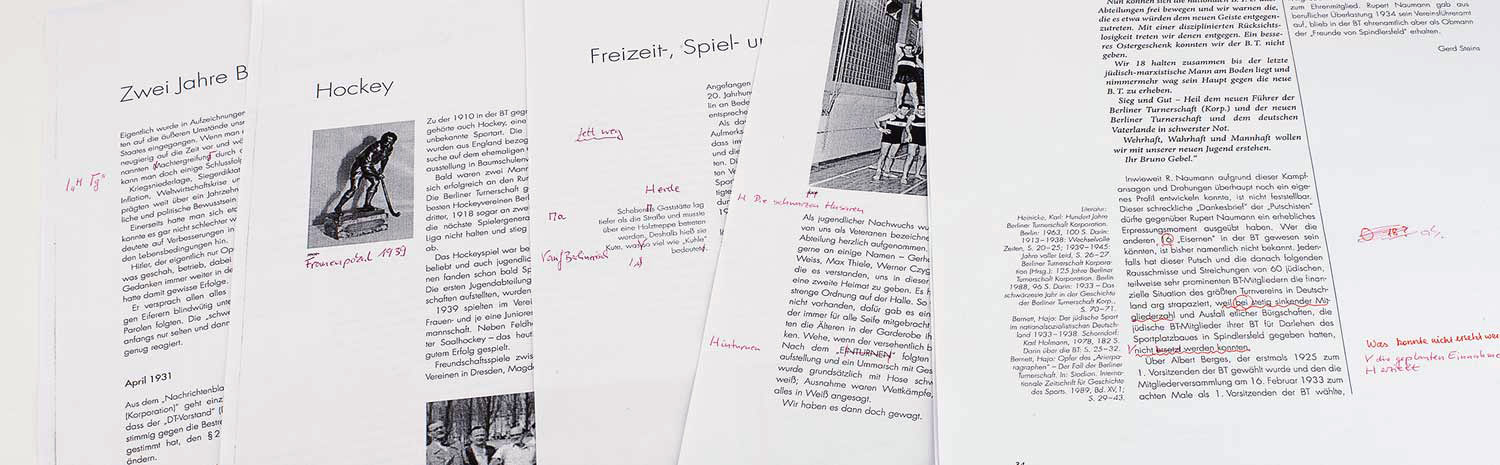 Zwei Jahre B
Eigentlich wurde in Aufzeichnungen
ten auf die äußeren Umstände
Staates eingegangen. Wenn man
neugierig auf die Zeit vor und
nannten Machtergreifung durch
kann man doch einige Schlussfolg
Kriegsniederlage, Siegerdiktat
Inflation, Weltwirtschaftskrise
prägten weit über ein Jahrzehn
liche und politische Bewusstsein
Einerseits hatte man sich
konnte es gar nicht schlechter
deutete auf Verbesserungen in
den Lebensbedingungen hin.
Hitler, der eigentlich nur Op
was geschah, betrieb, dabei
Gedanken immer weiter in de
hatte damit gewisse Erfolge.
Er versprach allen alles
gen Eiferern blindwütig unte
Parolen folgten. Die „schwe
anfangs nur selten und dann
genug reagiert.
April 1931
Aus dem „Nachrichtenblat
(Korporation)" geht einz
dass der „DT-Vorstand" (
stimmig gegen die Bestre
gestimmt hat, den § 2
ändern.
Hockey
Frauenpokal 1939
Zu der 1910 in der BT gegr
gehörte auch Hockey, eine
unbekannte Sportart. Die
wurden aus England bezog
suche auf dem ehemaligen
ausstellung in Baumschulenw
Bald waren zwei Mann
sich erfolgreich an den Run
Die Berliner Turnerschaft g
besten Hockeyvereinen Berl
dritter, 1918 sogar an zwei
die nächste Spielergenera
liga nicht halten und stieg
ab.
Das Hockeyspiel war be
beliebt und auch jugendlich
nen fanden schon bald Sp
Die ersten Jugendabteilung
schaften aufstellten, wurden
1939 spielten im Verei
Frauen- und je eine Juniore
mannschaft. Neben Feldh
ter Saalhockey – das heut
gutem Erfolg gespielt.
Freundschaftsspiele zwis
Vereinen in Dresden, Magd
Freizeit-, Spiel- u
fett weg
Herde
Scheben Gaststätte lag
tiefer als die Straße und musste
über eine Holztreppe betreten
werden. Deshalb hieß sie
Kute, was so viel wie „Kuhle"
bedeutet.
Angefangen
20. Jahrhun
lin an Bede
entspreche
Als da
Aufmerks
dass im
und die
ten. Di
H Die schwarzen Husaren
Als jugendlicher Nachwuchs wu
von uns als Veteranen bezeichne
Abteilung herzlich aufgenommen.
gerne an einige Namen – Gerha
Weiss, Max Thiele, Werner Czyg
die es verstanden, uns in dieser
eine zweite Heimat zu geben. Es
strenge Ordnung auf der Halle. So
nicht vorhanden, dafür gab es ein
der immer für alle Seife mitgebracht
ten die Älteren in der Garderobe ih
ken. Wehe, wenn der versehentlich b
Hinturnen
Nach dem „EINTURNEN" folgten
aufstellung und ein Ummarsch mit Ges
wurde grundsätzlich mit Hose schw
weiß; Ausnahme waren Wettkämpfe,
alles in Weiß angesagt.
Wir haben es dann doch gewagt.
Abteilungen frei bewegen und wir warnen die,
die es etwa würden dem neuen Geiste entgegen-
zutreten. Mit einer disziplinierten Rücksichts-
losigkeit treten wir denen entgegen. Ein besse-
res Ostergeschenk konnten wir der B. T. nicht
geben.
Wir 18 halten zusammen bis der letzte
jüdisch-marxistische Mann am Boden liegt und
nimmermehr wag sein Haupt gegen die neue
B. T. zu erheben.
Sieg und Gut – Heil dem neuen Führer der
Berliner Turnerschaft (Korp.) und der neuen
Berliner Turnerschaft und dem deutschen
Vaterlande in schwerster Not.
Wehrhaft, Wahrhaft und Mannhaft wollen
wir mit unserer neuen Jugend erstehen.
Ihr Bruno Gebel."
Inwieweit R. Naumann aufgrund dieser Kampf-
ansagen und Drohungen überhaupt noch ein eige-
nes Profil entwickeln konnte, ist nicht feststellbar.
Dieser schreckliche „Dankesbrief" der „Putschisten"
dürfte gegenüber Rupert Naumann ein erhebliches
Erpressungsmoment ausgeübt haben. Wer die
anderen 16 „Eisernen" in der BT gewesen sein
könnten, ist bisher namentlich nicht bekannt. Jeden-
falls hat dieser Putsch und die danach folgenden
Rausschmisse und Streichungen von 60 jüdischen,
teilweise sehr prominenten BT-Mitgliedern die finan-
zielle Situation des größten Turnvereins in Deutsch-
land arg strapaziert, weil bei stetig sinkender Mit-
gliederzahl und Ausfall etlicher Bürgschaften, die
jüdische BT-Mitglieder ihrer BT für Darlehen des
Sportplatzbaues in Spindlersfeld gegeben hatten,
nicht besetzt werden konnten.
Über Albert Berges, der erstmals 1925 zum
1. Vorsitzenden der BT gewählt wurde und den die
Mitgliederversammlung am 16. Februar 1933 zum
achten Male als 1. Vorsitzenden der BT wählte,
Literatur:
Heinicke, Karl: Hundert Jahre
Berliner Turnerschaft Korporation.
Berlin: 1963, 100 S. Darin:
1913–1938: Wechselvolle
Zeiten, S. 20–25; 1939–1945:
Jahre voller Leid, S. 26–27.
Berliner Turnerschaft Korpora-
tion (Hrsg.): 125 Jahre Berliner
Turnerschaft Korporation. Berlin
1988, 96 S. Darin: 1933 – Das
schwärzeste Jahr in der Geschichte
der Berliner Turnerschaft Korp.,
S. 70–71.
Bernett, Hajo: Der jüdische Sport
im nationalsozialistischen Deutsch-
land 1933–1938. Schorndorf:
Karl Hofmann, 1978, 182 S.
Darin über die BT: S. 25–32.
Bernett, Hajo: Opfer des „Arierpa-
ragraphen" – Der Fall der Berliner
Turnerschaft. In: Stadion. Interna-
tionale Zeitschrift für Geschichte
des Sports. 1989, Bd. XV,1;
S. 29–43.
zum Ehrenmitglied. Rupert Naumann gab aus
beruflicher Überlastung 1934 sein Vereinsführeramt
auf, blieb in der BT ehrenamtlich aber als Obmann
der „Freunde von Spindlersfeld" erhalten.
Gerd Steins
Was konnte nicht
V die geplanten Einnahme